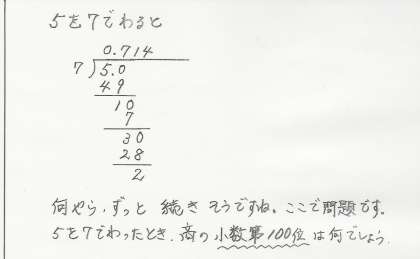 5を7でわると
0.714
7)5.0
49
10
7
30
28
2
何やら、ずっと 続き そうですね。ここで問題です。
5を7でわったとき、商の 小数第100位 は何でしょう。